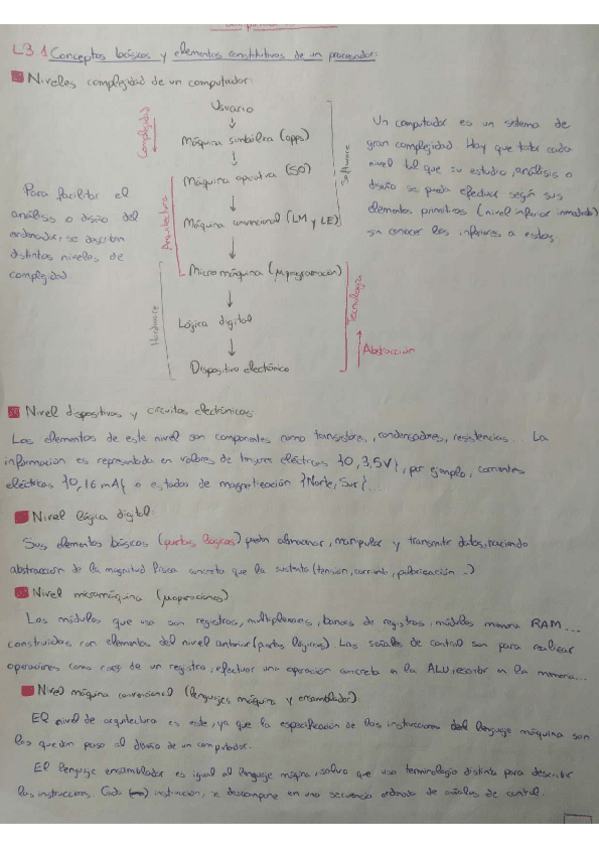 L3.1 Conceptos básicos y elementos constitutivos de un procesador:
Niveles complejidad de un computador:
Complejidad
Usuario
Máquina simbólica (apps)
Máquina operativa (SO)
Máquina convencional (LM y LE)
Micromáquina (μprogramación)
Lógica digital
Dispositivo electrónico
Software
Arquitectura
Hardware
Tecnología
Abstracción
Para facilitar el
análisis o diseño del
ordenador, se describen
distintos niveles de
complejidad
Un computador es un sistema de
gran complejidad. Hay que tratar cada
nivel tal que su estudio, análisis o
diseño se pueda efectuar según sus
elementos primitivos (nivel inferior inmediato)
sin conocer los inferiores a estos.
Nivel dispositivos y circuitos electrónicos:
Los elementos de este nivel son componentes como transistores, condensadores, resistencias... La
información es representada en valores de tensiones eléctricas {0, 3,5V}, por ejemplo, corrientes
eléctricas {0, 16 mA} o estados de magnetización {Norte, Sur}...
Nivel lógica digital:
Sus elementos básicos (puertas lógicas) pueden almacenar, manipular y transmitir datos, haciendo
abstracción de la magnitud física concreta que la sustenta (tensión, corriente, ...)
Nivel micromáquina (μoperaciones)
Los módulos que usa son registros, multiplexores, bancos de registros, módulos memoria RAM...
construidos con elementos del nivel anterior (puertas lógicas). Las señales de control son para realizar
operaciones como carga de un registro, efectuar una operación concreta en la ALU, escribir en la memoria...
Nivel máquina convencional (lenguajes máquina y ensamblador):
El nivel de arquitectura es este, ya que la especificación de las instrucciones del lenguaje máquina son
las que dan paso al diseño de un computador.
El lenguaje ensamblador es igual al lenguaje máquina, salvo que usa terminología distinta para describir
las instrucciones. Cada instrucción, se descompone en una secuencia ordenada de señales de control.